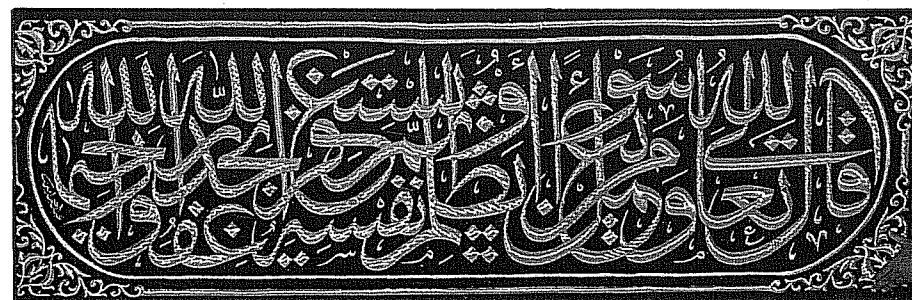 قال الله تعالى ومن يعمل سوءا أو يظلم نفسه ثم يستغفر الله يجد الله غفورا رحيما